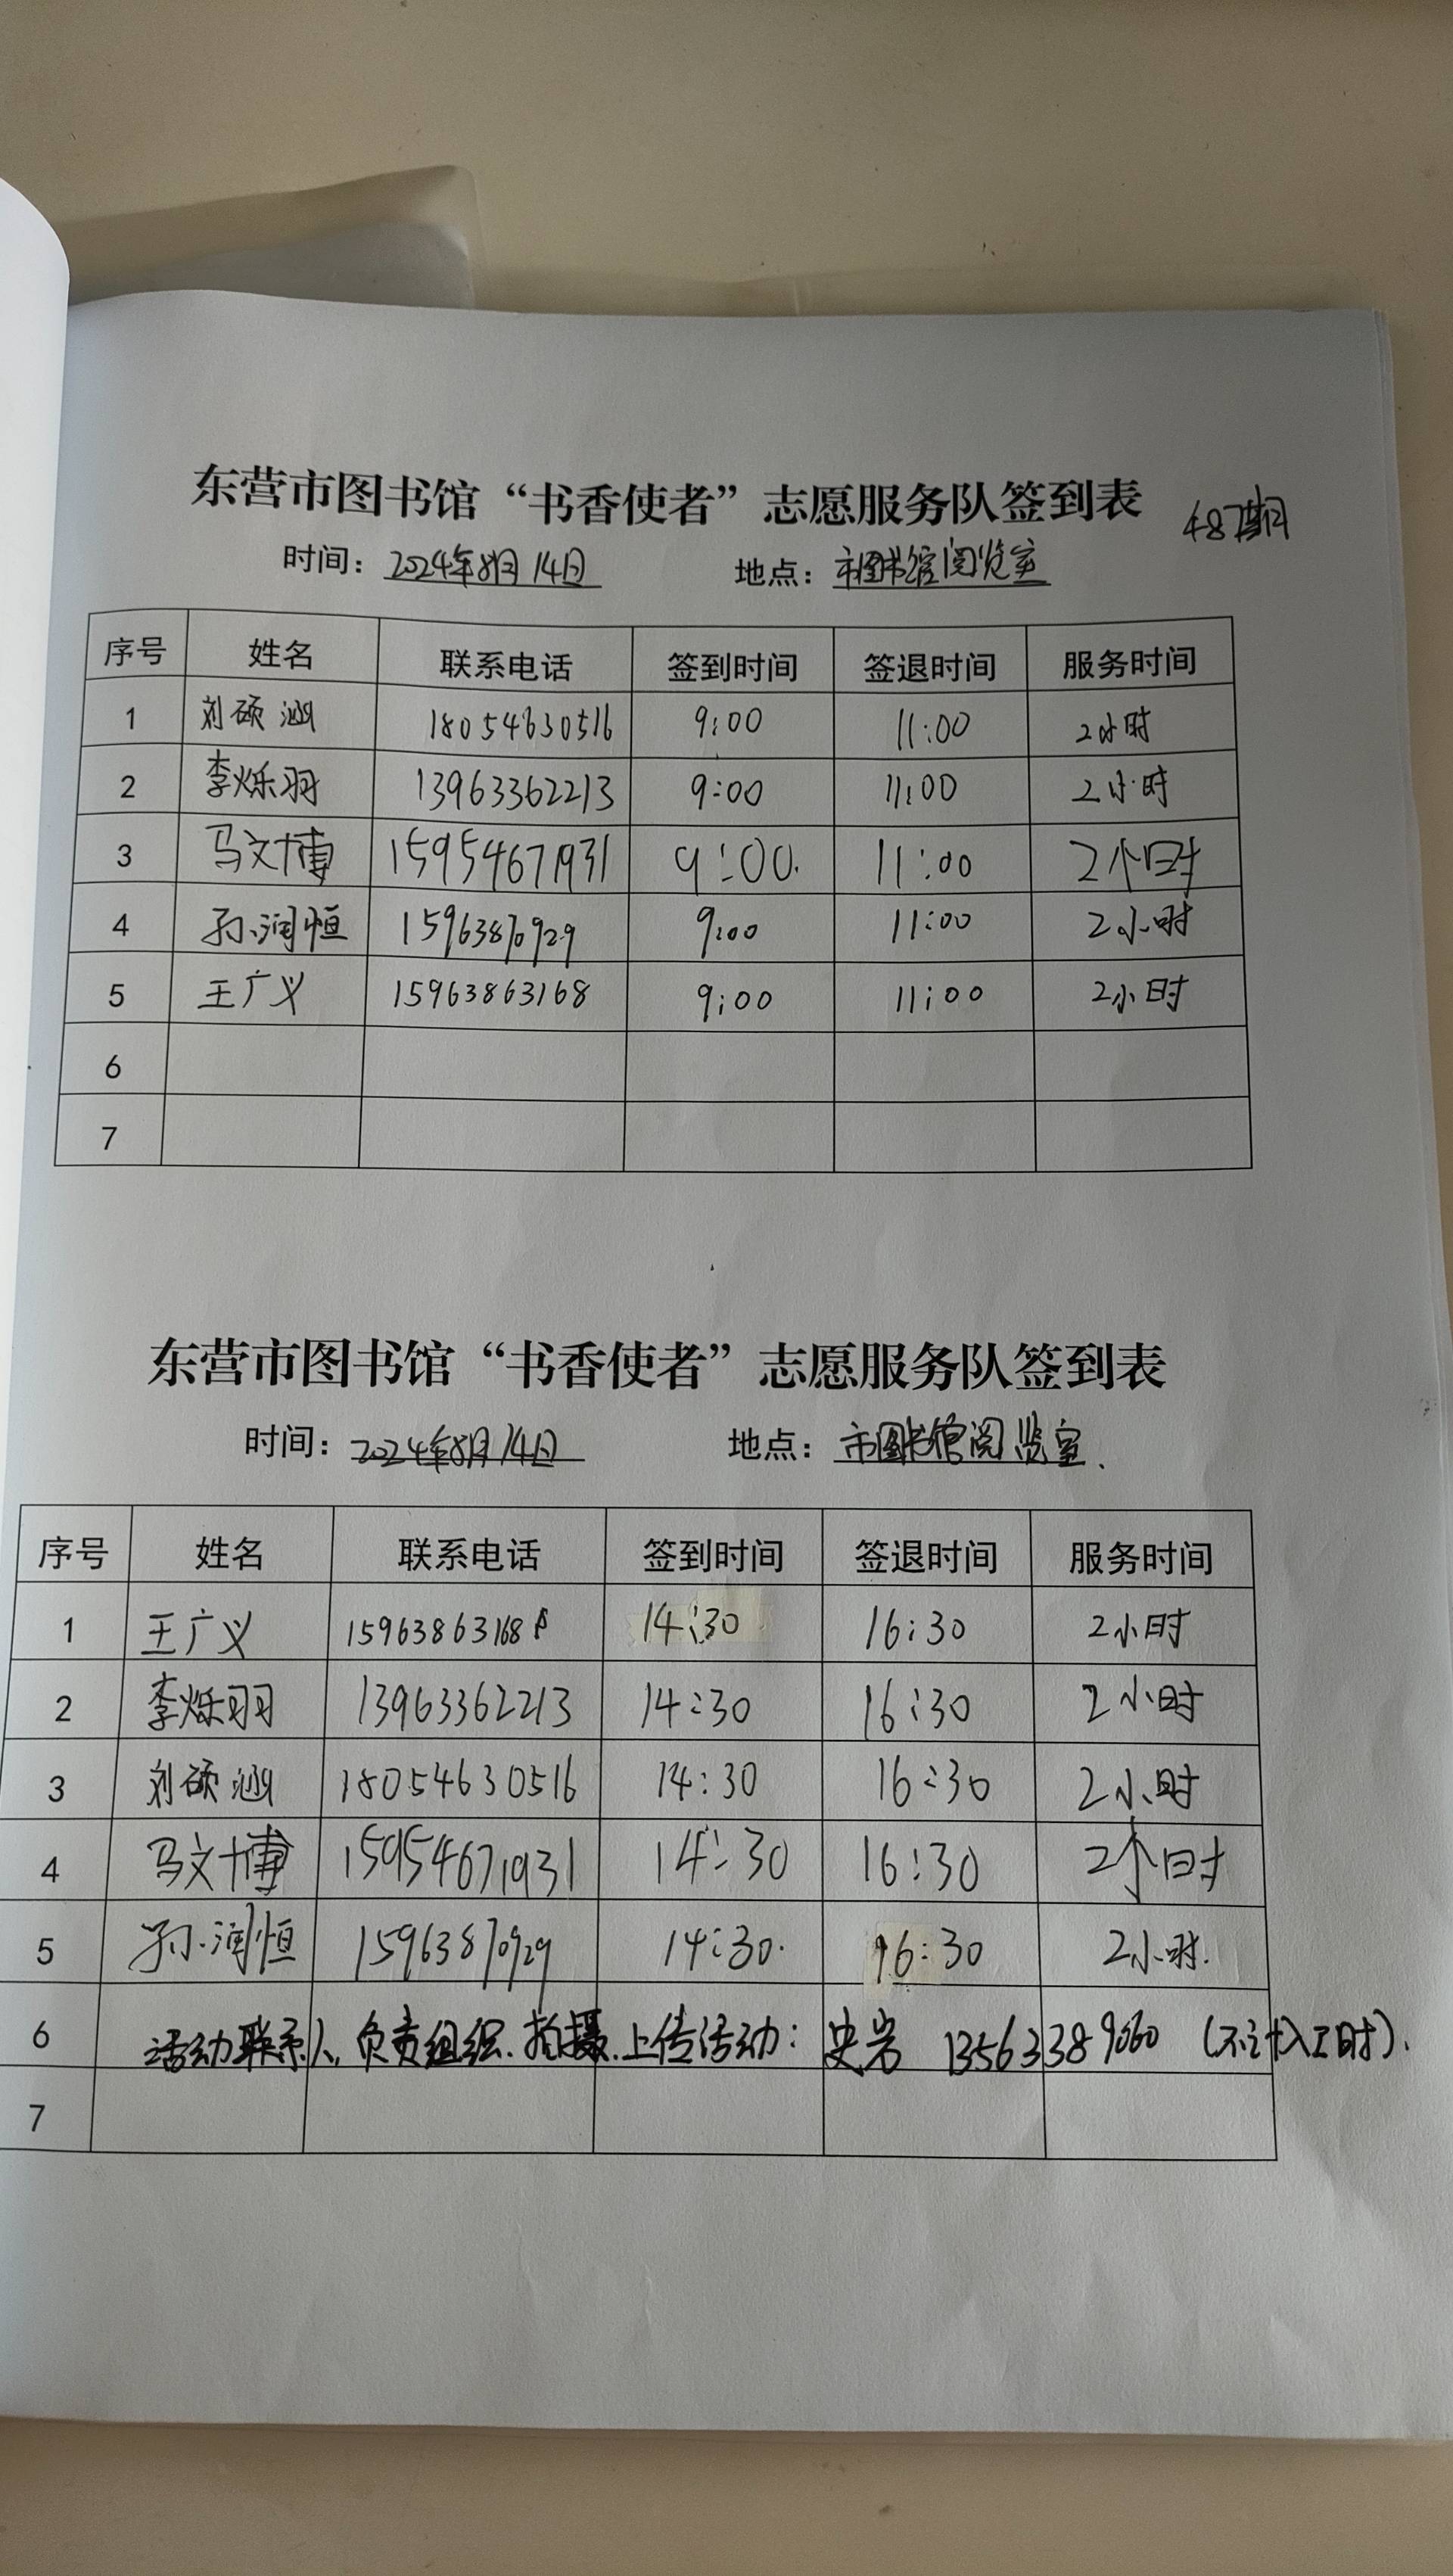 东营市图书馆“书香使者”志愿服务队签到表 487期
时间：2024年8月14日 地点：市图书馆阅览室
序号 姓名 联系电话 签到时间 签退时间 服务时间
1 刘硕涵 18054630516 9:00 11:00 2小时
2 李烁羽 13963362213 9:00 11:00 2小时
3 马文博 15954671931 9:00. 11:00 2小时
4 孙润恒 15963870929 9:00 11:00 2小时
5 王广义 15963863168 9:00 11:00 2小时
6
7
东营市图书馆“书香使者”志愿服务队签到表
时间：2024年8月14日 地点：市图书馆阅览室.
序号 姓名 联系电话 签到时间 签退时间 服务时间
1 王广义 15963863168 14:30 16:30 2小时
2 李烁羽 13963362213 14:30 16:30 2小时
3 刘硕涵 18054630516 14:30 16:30 2小时
4 马文博 15954671931 14:30 16:30 2小时
5 孙润恒 15963870929 14:30. 16:30 2小时.
6 活动联系人,负责组织.拍摄.上传活动：史岩 13563389060 (不计入工时).
7